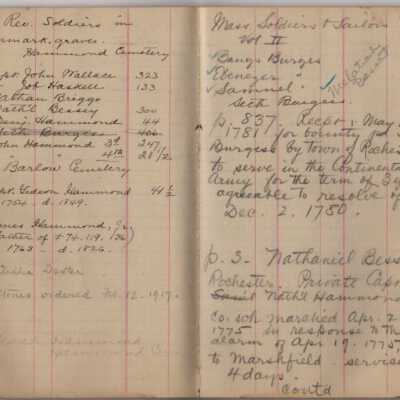 Rev. Soldiers in
unmark. graves.
Hammond Cemetery
Capt John Wallace 323
" Job Haskell 133
Nathan Briggs
Nath'l Bessey 300
Benj. Hammond 44
Seth Burgess 406
John Hammond 3d 247
4th 281/2
"Barlow" Cemetery
Capt. Gideon Hammond 41 1/2
1754 d. 1849.
James Hammond, Jr.
1763 - d. 1826.
Stones ordered Feb. 12 - 1917.
Mass. Soldiers & Sailors
Vol II
Bangs Burges
Ebenezer "
Samuel "
Seth Burgess.
p. 837. Recpt. May
1781 for bounty pd
Burgess by Town of Roches
to serve in the Continenta
Army for the term of 3 y
agreeable to resolve of
Dec. 2, 1780.
p. 3 - Nathaniel Bess
Rochester. Private Cap
Nath'l Hammond
Co. wh marched Apr. 2
1775 in response to th
alarm of Apr. 19. 1775
to Marshfield servic
4 days.
contd